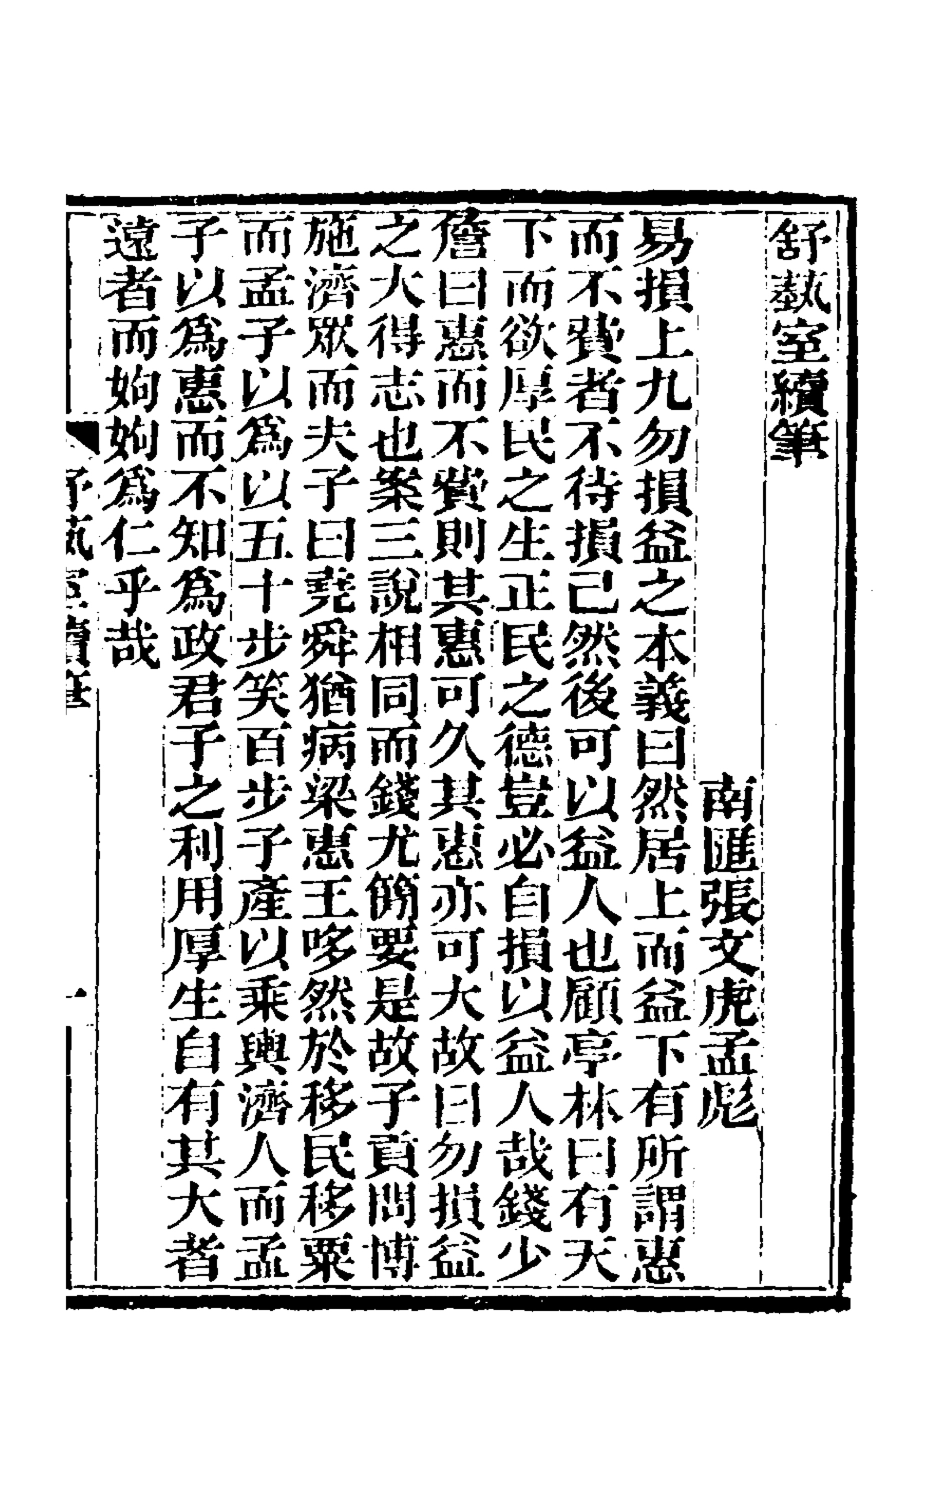 舒蓺室續筆
南匯張文虎孟彪
易損上九勿損益之本義曰然居上而益下有所謂惠
而不費者不待損己然後可以益人也顧亭林曰有天
下而欲厚民之生正民之德豈必自損以益人哉錢少
詹曰惠而不費則其惠可久其惠亦可大故曰勿損益
之大得志也案三說相同而錢尤簡要是故子貢問博
施濟眾而夫子曰堯舜猶病梁惠王哆然於移民移粟
而孟子以爲以五十步笑百步子產以乘輿濟人而孟
子以爲惠而不知爲政君子之利用厚生自有其大者
遠者而姁姁爲仁乎哉
舒蓺室續筆
一